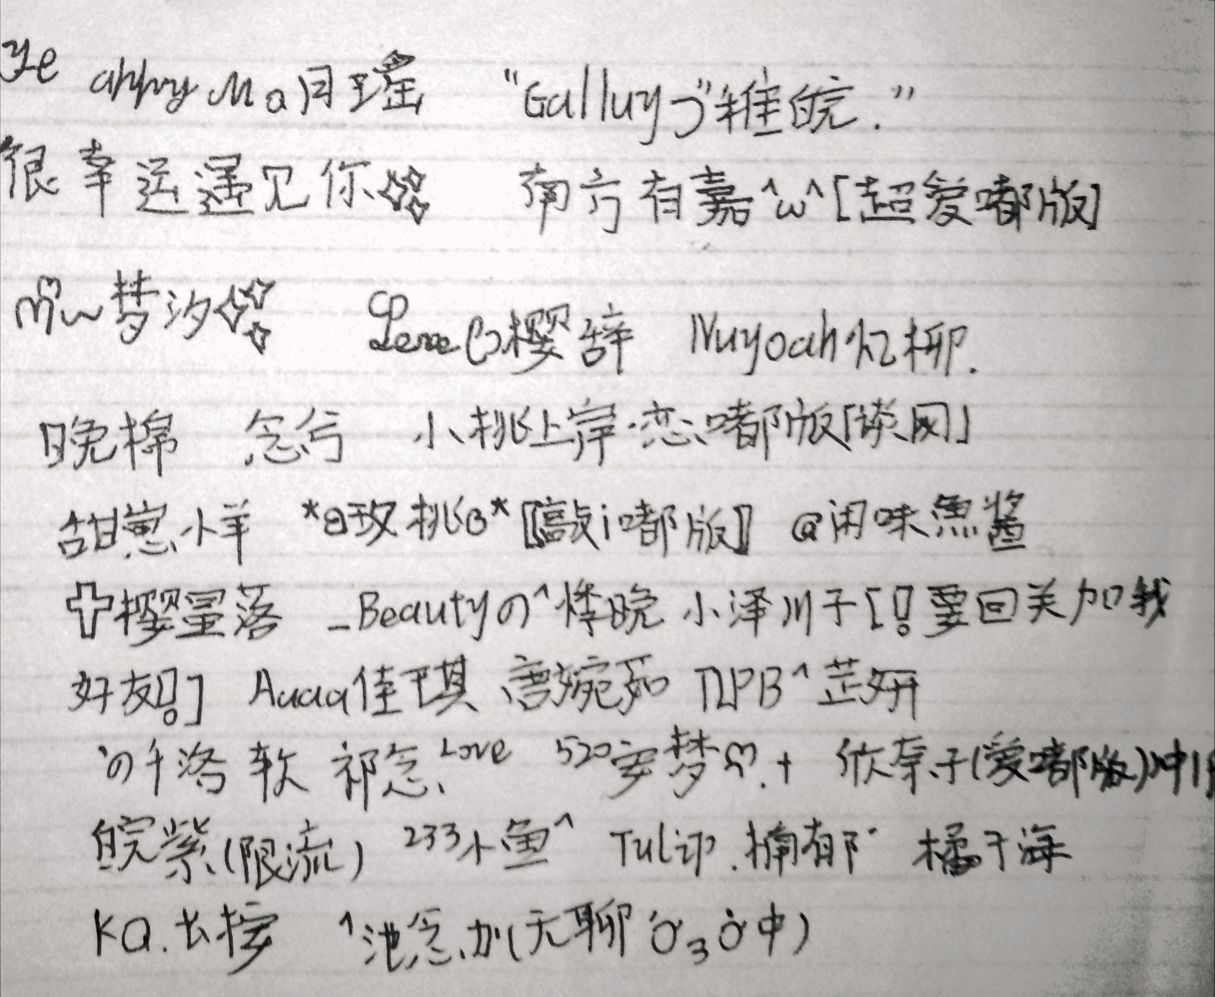 Ye ahhy Ma月瑶 “Galluyゔ维皖.”
很幸运遇见你 南方有嘉^ω^[超爱嘟版]
梦汐 Leve心樱辞 Nuyoah忆柳.
晚棉 念兮 小桃上岸·恋嘟版「谈网」
甜葱小羊 *a玫桃B*〖敲i嘟版〗 @闲味魚醬
樱星落 _Beautyの^烽晚 小泽川子[!要回关加我
好友!] Auaa佳琪 唐婉茹 ^芷妍
の千洛 软 祁念Love 520安梦.+ 依奈子(爱嘟版)冲
皖紫(限流) 233小鱼^ Tulip.楠郁 橘子海
KQ.长按 ^池念.加(无聊 中)